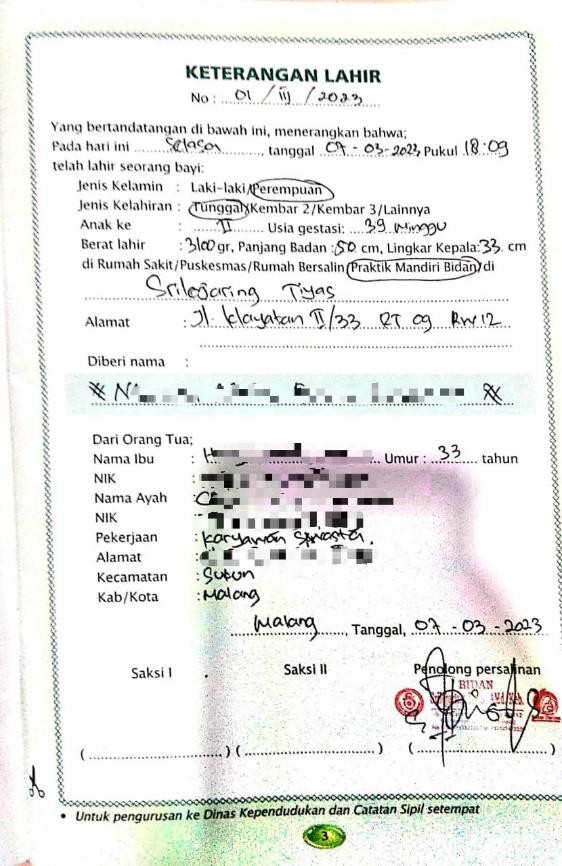 KETERANGAN LAHIR
No : 01 / III / 2023
Yang bertandatangan di bawah ini, menerangkan bahwa;
Pada hari ini Selasa, tanggal 07 - 03-2023, Pukul 18:09
telah lahir seorang bayi:
Jenis Kelamin : Laki-laki/Perempuan
Jenis Kelahiran : Tunggal/Kembar 2/Kembar 3/Lainnya
Anak ke : II Usia gestasi: 39 Minggu
Berat lahir : 3100 gr, Panjang Badan : 50 cm, Lingkar Kepala: 33 cm
di Rumah Sakit/Puskesmas/Rumah Bersalin/Praktik Mandiri Bidan/di
Tiyas
Alamat : Jl. Klayatan II/33 RT 09 RW 12
Diberi nama :
Dari Orang Tua;
Nama Ibu : Umur : 33 tahun
NIK :
Nama Ayah :
NIK :
Pekerjaan : Karyawan Swasta.
Alamat :
Kecamatan : Sukun
Kab/Kota : Malang
Malang, Tanggal, 07 - 03 - 2023
Saksi I Saksi II Penolong persalinan
BIDAN
• Untuk pengurusan ke Dinas Kependudukan dan Catatan Sipil setempat
3